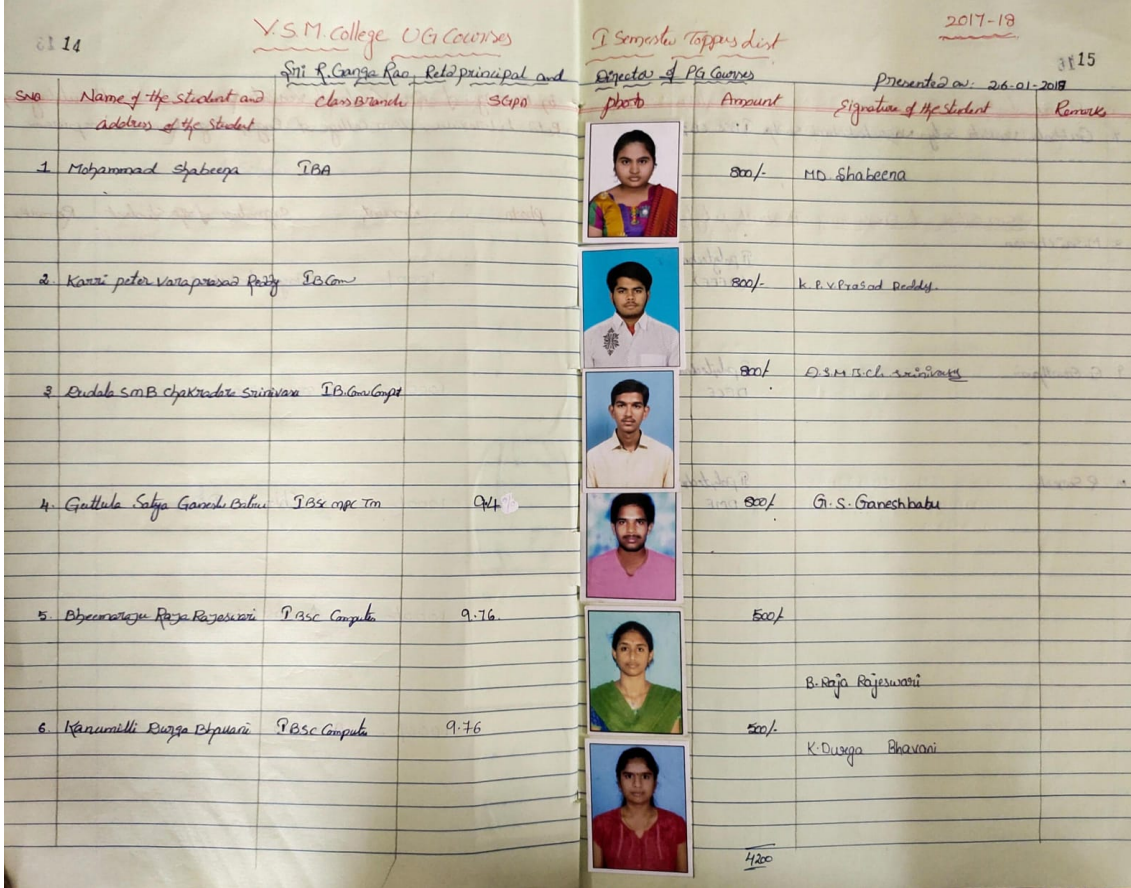 14
V.S.M. College UG Courses I Semester Toppers List
2017-18
15
Sri R. Ganga Rao, Retd principal and Director of PG Courses
Presented on: 26-01-2018
SNO Name of the student and address of the student Class Branch SGPA photo Amount Signature of the student Remarks
1 Mohammad Shabeena I BA 800/- MD. Shabeena
2. Karri peter Varaprasad Reddy I BCom 800/- K.P.V.Prasad Reddy.
3 SMB Chakradara Srinivasa I B.Com Compt 800/ D.S.M.B.Ch. Srinivas
4. Guttula Satya Ganesh Babu I BSc MPC Tm 9.4 800/ G.S.Ganeshbabu
5. Bheemaraju Raja Rajeswari I BSc Computer 9.76. 500/ B.Raja Rajeswari
6. Kanumilli Durga Bhavani I BSc Computer 9.76 500/- K.Durga Bhavani
4200